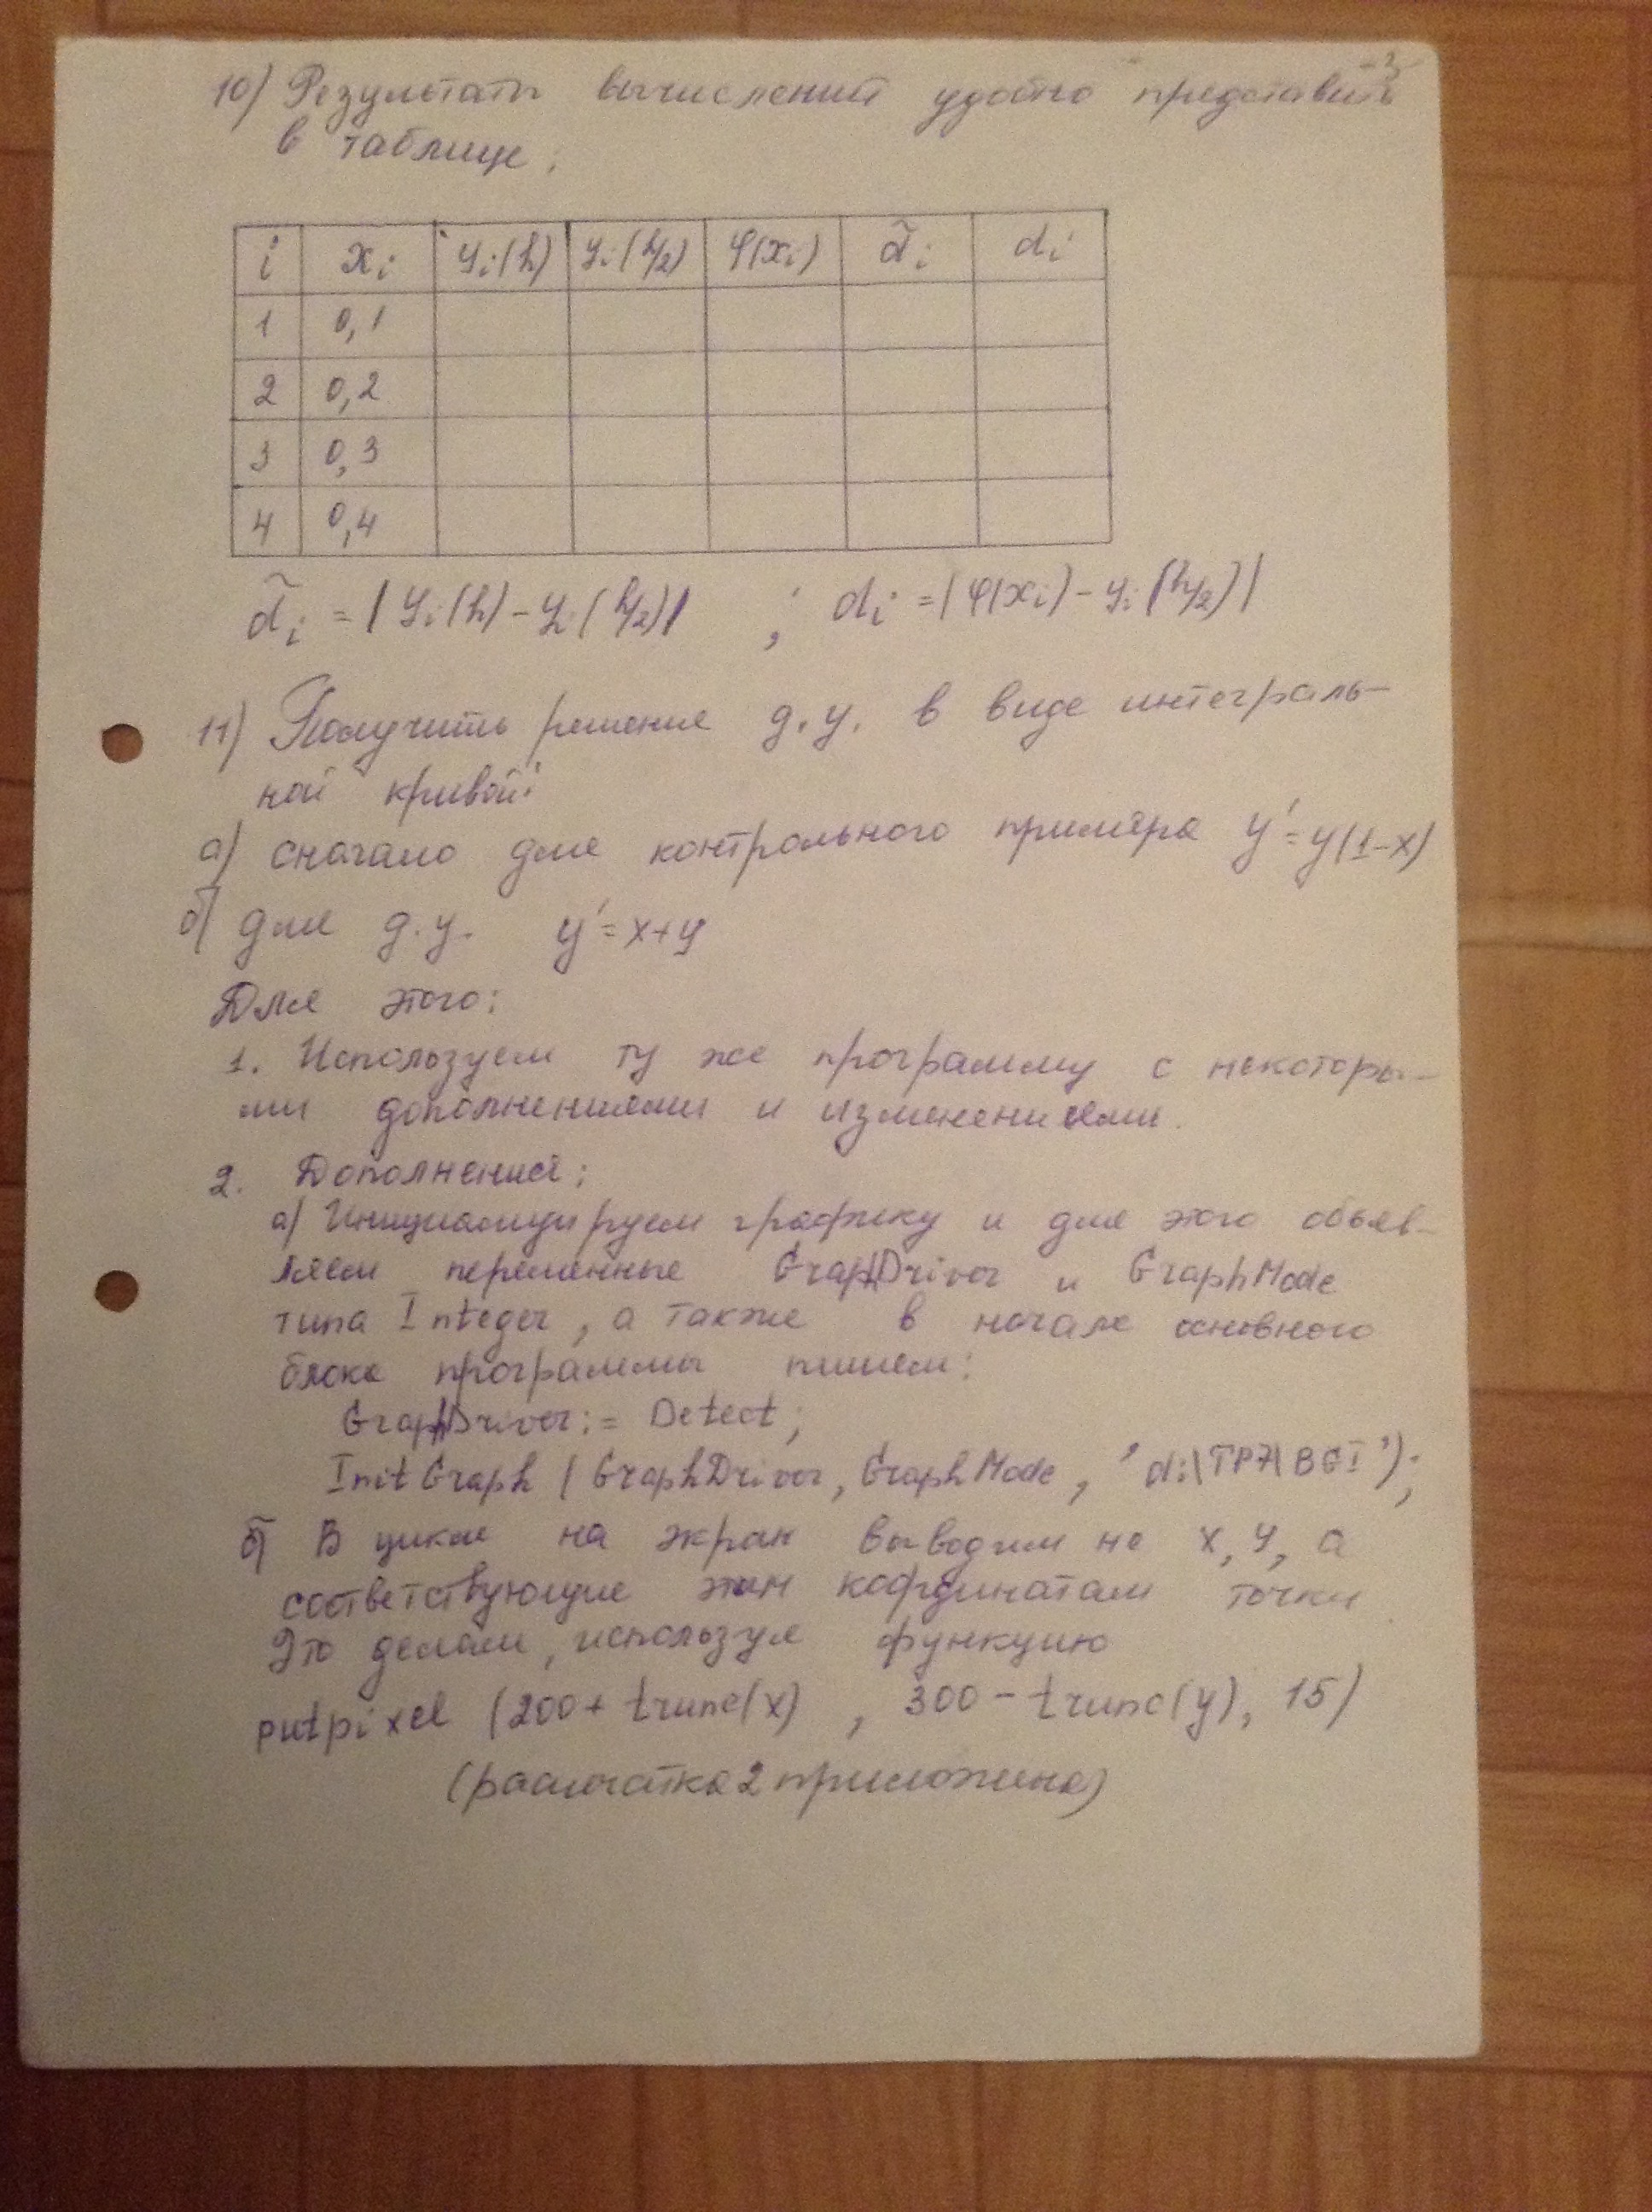 10) Результаты вычислений удобно представить
в таблице:
i xi yi(h) yi(h/2) φ(xi) d̃i di
1 0,1
2 0,2
3 0,3
4 0,4
d̃i = |yi(h) - yi(h/2)| ; di = |φ(xi) - yi(h/2)|
11) Получить решение д.у. в виде интеграль-
ной кривой:
а) сначало для контрольного примера y' = y(1-x)
б) для д.у. y' = x+y
Для этого:
1. Используем ту же программу с некоторы-
ми дополнениями и изменениями.
2. Дополнения:
а) Инициализируем графику и для этого объяв-
ляем переменные GraphDriver и GraphMode
типа Integer, а также в начале основного
блока программы пишем:
GraphDriver := Detect;
InitGraph (GraphDriver, GraphMode, 'd:\TP7\BGI');
б) В цикле на экран выводим не x, y, а
соответствующие этим координатам точки
Это делаем, используя функцию
putpixel (200 + trunc(x), 300 - trunc(y), 15)
(распечатка 2 приложена)